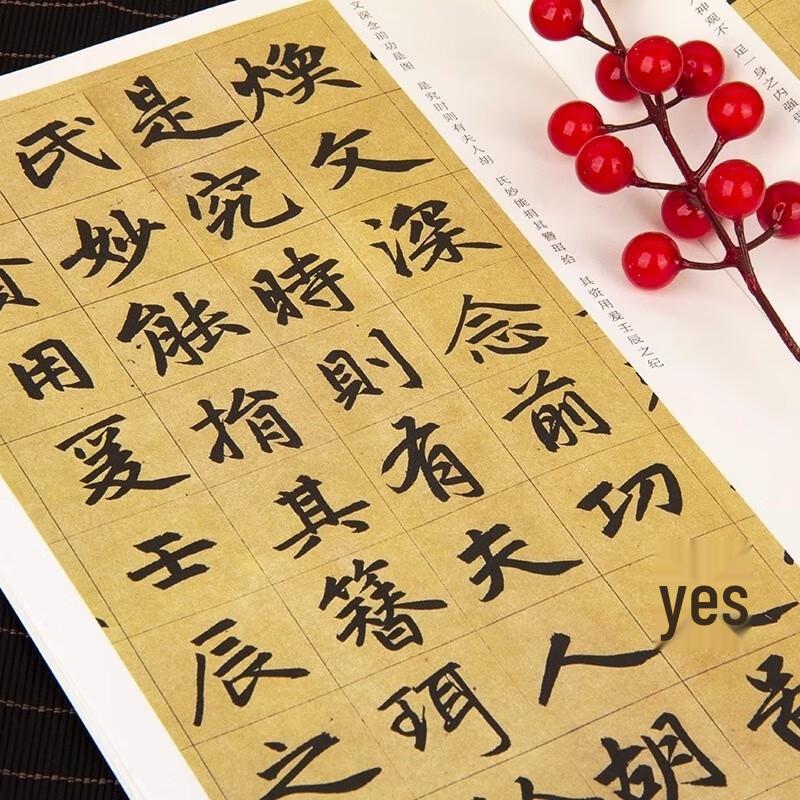 煥文深念前功
是究時則有夫人胡
氏妙能捐其簪珥
用爰壬辰之
文深念前功是图 是究时则有夫人胡 氏妙能捐其簪珥给 其资用爰壬辰之纪
神观不 足一身之内强
yes